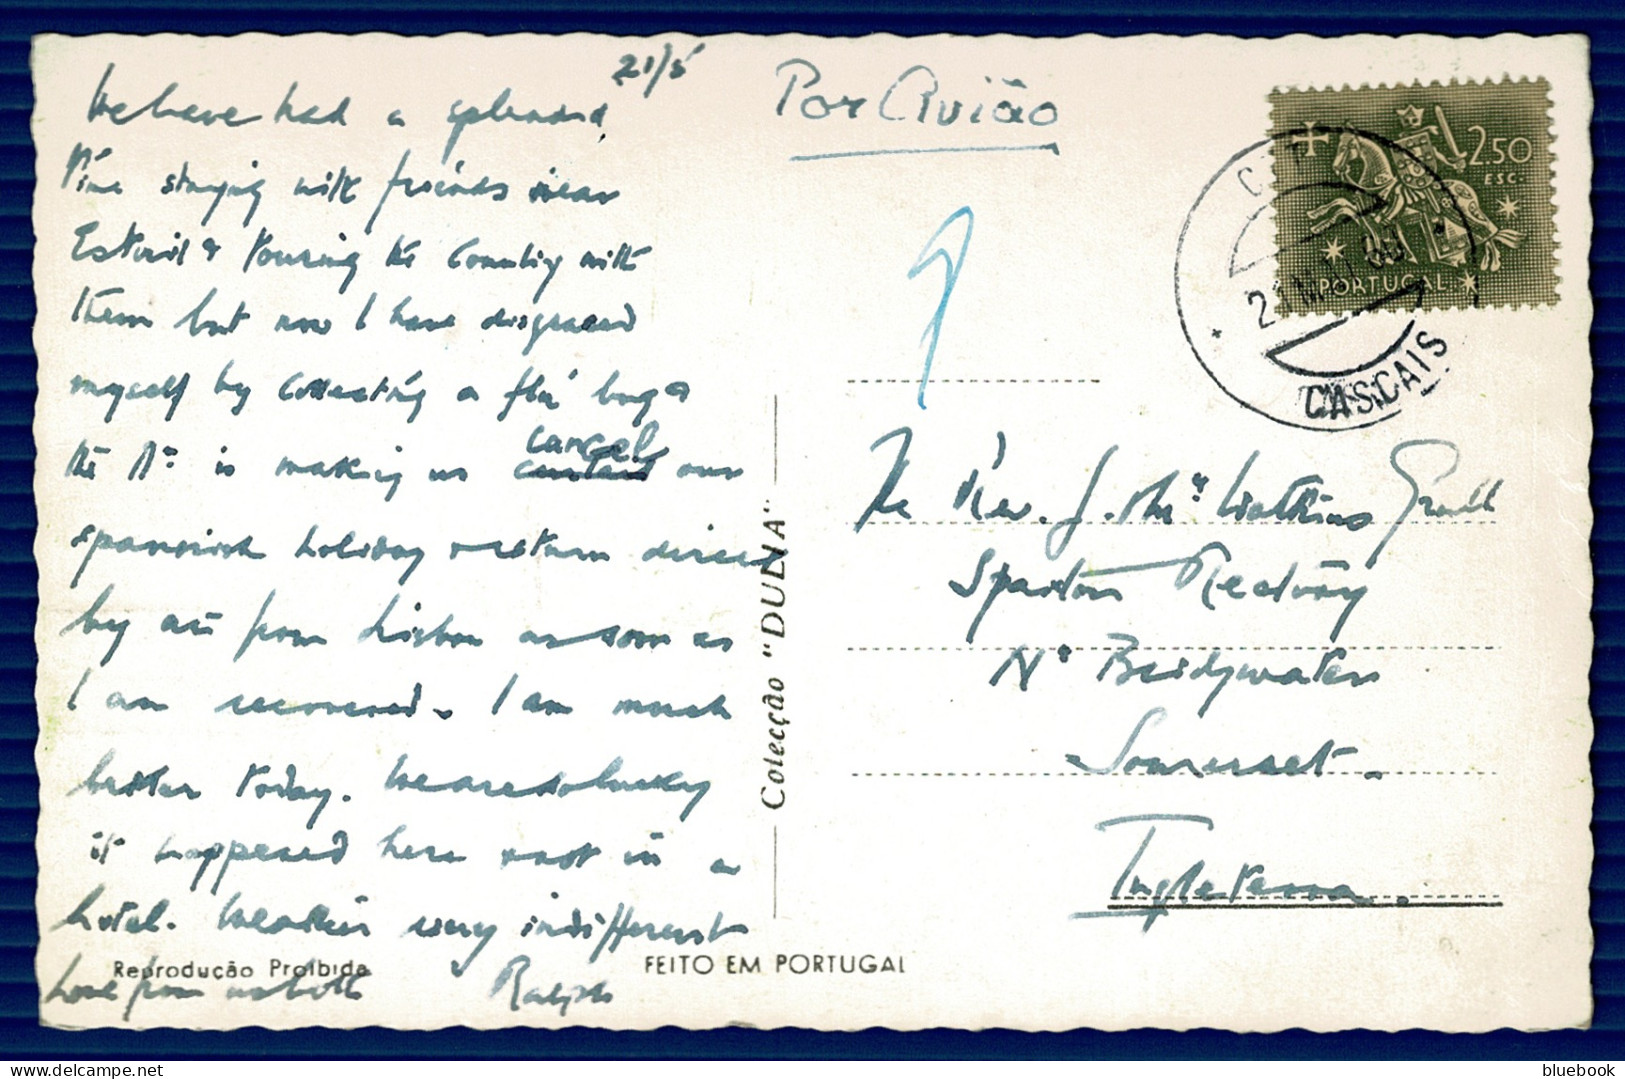 21/5
We have had a splendid
time staying with friends near
Estoril & touring the Country with
them but now I have disgraced
myself by collecting a flu bug &
the Dr. is making us cancel our
spanish holiday & return direct
by air from Lisbon as soon as
I am recovered. I am much
better today. We are so lucky
it happened here & not in a
hotel. Weather very indifferent
Love from us both Ralph
Reprodução Proibida
FEITO EM PORTUGAL
Colecção "DULIA"
Por Avião
2.50
ESC.
PORTUGAL
CTT
21 MAI
CASCAIS
The Rev. J. Watkins
Rectory
Nr Bridgwater
Somerset.
Inglaterra.
bluebook